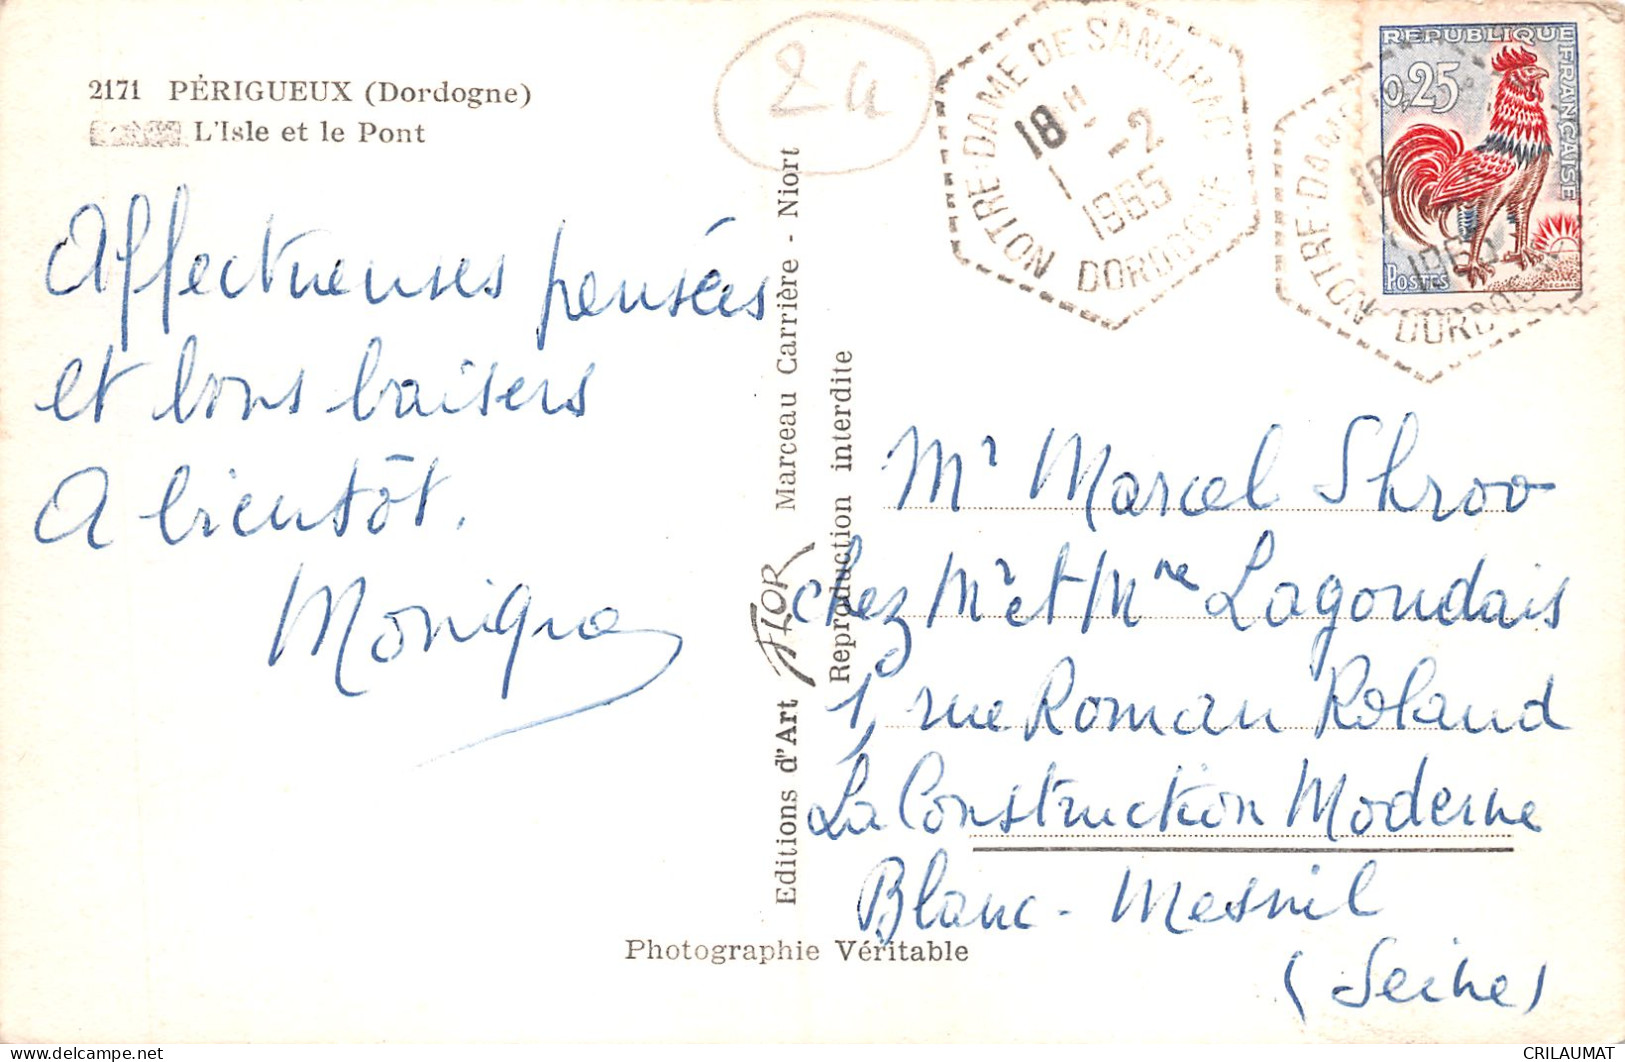 2171 PÉRIGUEUX (Dordogne)
L'Isle et le Pont
Affectueuses pensées
et bons baisers
A bientôt.
Monique
2a
Editions d'Art FLOR Marceau Carrière - Niort
Reproduction interdite
Photographie Véritable
NOTRE-DAME DE SANILHAC
18 H
1 -2
1965
DORDOGNE
REPUBLIQUE FRANÇAISE
0,25
POSTES
NOTRE-DAME
18
1965
DORDOGNE
Mr Marcel Shroo
chez Mr et Mme Lagoudais
1, rue Roman Roland
La Construction Moderne
Blanc-Mesnil
(Seine)
CRILAUMAT